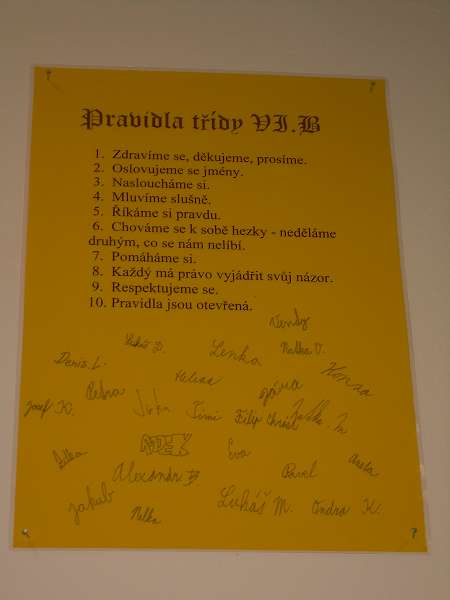 Pravidla třídy VI.B
1. Zdravíme se, děkujeme, prosíme.
2. Oslovujeme se jmény.
3. Nasloucháme si.
4. Mluvíme slušně.
5. Říkáme si pravdu.
6. Chováme se k sobě hezky - neděláme
druhým, co se nám nelíbí.
7. Pomáháme si.
8. Každý má právo vyjádřit svůj názor.
9. Respektujeme se.
10. Pravidla jsou otevřená.
Lenka
Denis L.
Helena
Honza
Josef K.
Filip
Eva
Pavel
Aneta
Jakub
Lukáš M.
Ondra K.